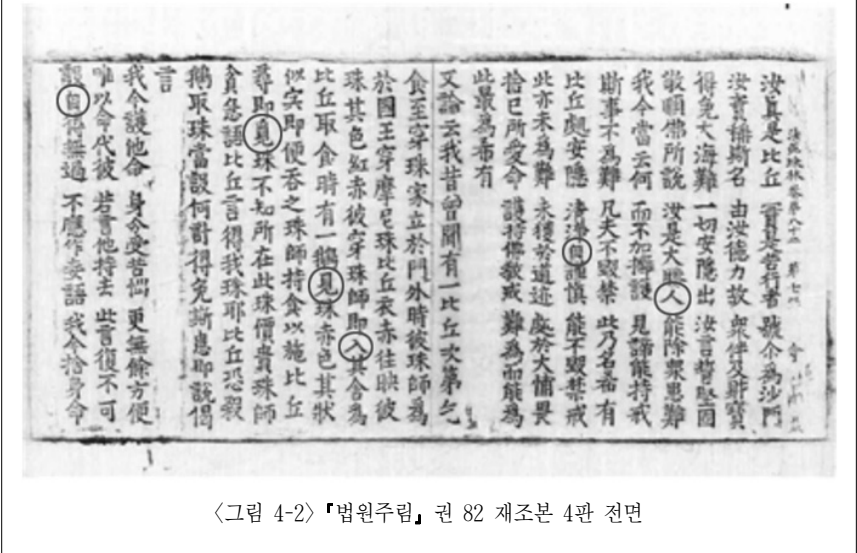 法苑珠林卷第八十二 第七
汝真是比丘 實是苦行者 號尒為沙門
汝實稱斯名 由汝德力故 衆伴及財寶
得免大海難 一切安隱出 汝言誓堅固
敬順佛所說 汝是大勝人 能除衆患難
我今當云何 而不加擁護 見諦能持戒
斯事不為難 凡夫不毀禁 此乃名希有
比丘處安隱 清淨自謹慎 能不毀禁戒
此亦未為難 未獲於道迹 處於大怖畏
捨已所愛命 護持佛敎戒 難為而能為
此最為希有
又論云我昔曾聞有一比丘次第乞
食至穿珠家立於門外時彼珠師為
於國王穿摩尼珠比丘衣赤往映彼
珠其色紅赤彼穿珠師即入其舍為
比丘取食時有一鵝見珠赤色其狀
似宍即便吞之珠師持食以施比丘
尋即見珠不知所在此珠價貴珠師
貪急語比丘言得我珠耶比丘恐殺
鵝取珠當設何計得免斯患即說偈
言
我今護他命 身分受苦惱 更無餘方便
唯以命代彼 若言他持去 此言復不可
設自得無過 不應作妄語 我今捨身命
〈그림 4-2〉『법원주림』 권 82 재조본 4판 전면